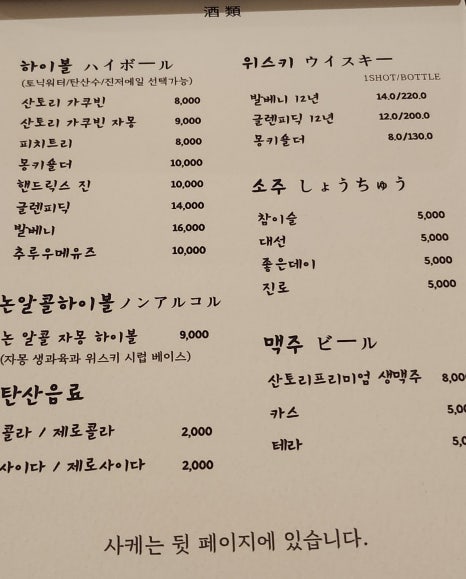 酒類
하이볼 ハイボール
(토닉워터/탄산수/진저에일 선택가능)
산토리 가쿠빈 8,000
산토리 가쿠빈 자몽 9,000
피치트리 8,000
몽키숄더 10,000
핸드릭스 진 10,000
글렌피딕 14,000
발베니 16,000
추루우메유즈 10,000
논알콜하이볼 ノンアルコル
논 알콜 자몽 하이볼 9,000
(자몽 생과육과 위스키 시럽 베이스)
탄산음료
콜라 / 제로콜라 2,000
사이다 / 제로사이다 2,000
위스키 ウイスキー
1SHOT/BOTTLE
발베니 12년 14.0/220.0
글렌피딕 12년 12.0/200.0
몽키숄더 8.0/130.0
소주 しょうちゅう
참이슬 5,000
대선 5,000
좋은데이 5,000
진로 5,000
맥주 ビール
산토리프리미엄 생맥주 8,00
카스 5,0
테라 5,0
사케는 뒷 페이지에 있습니다.